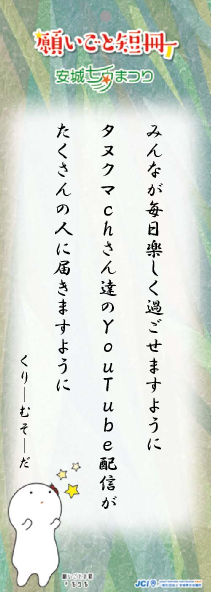 願いごと短冊
安城七夕まつり
みんなが毎日楽しく過ごせますように
タヌクマchさん達のYouTube配信が
たくさんの人に届きますように
くりーむそーだ
願いごと短冊
JCI